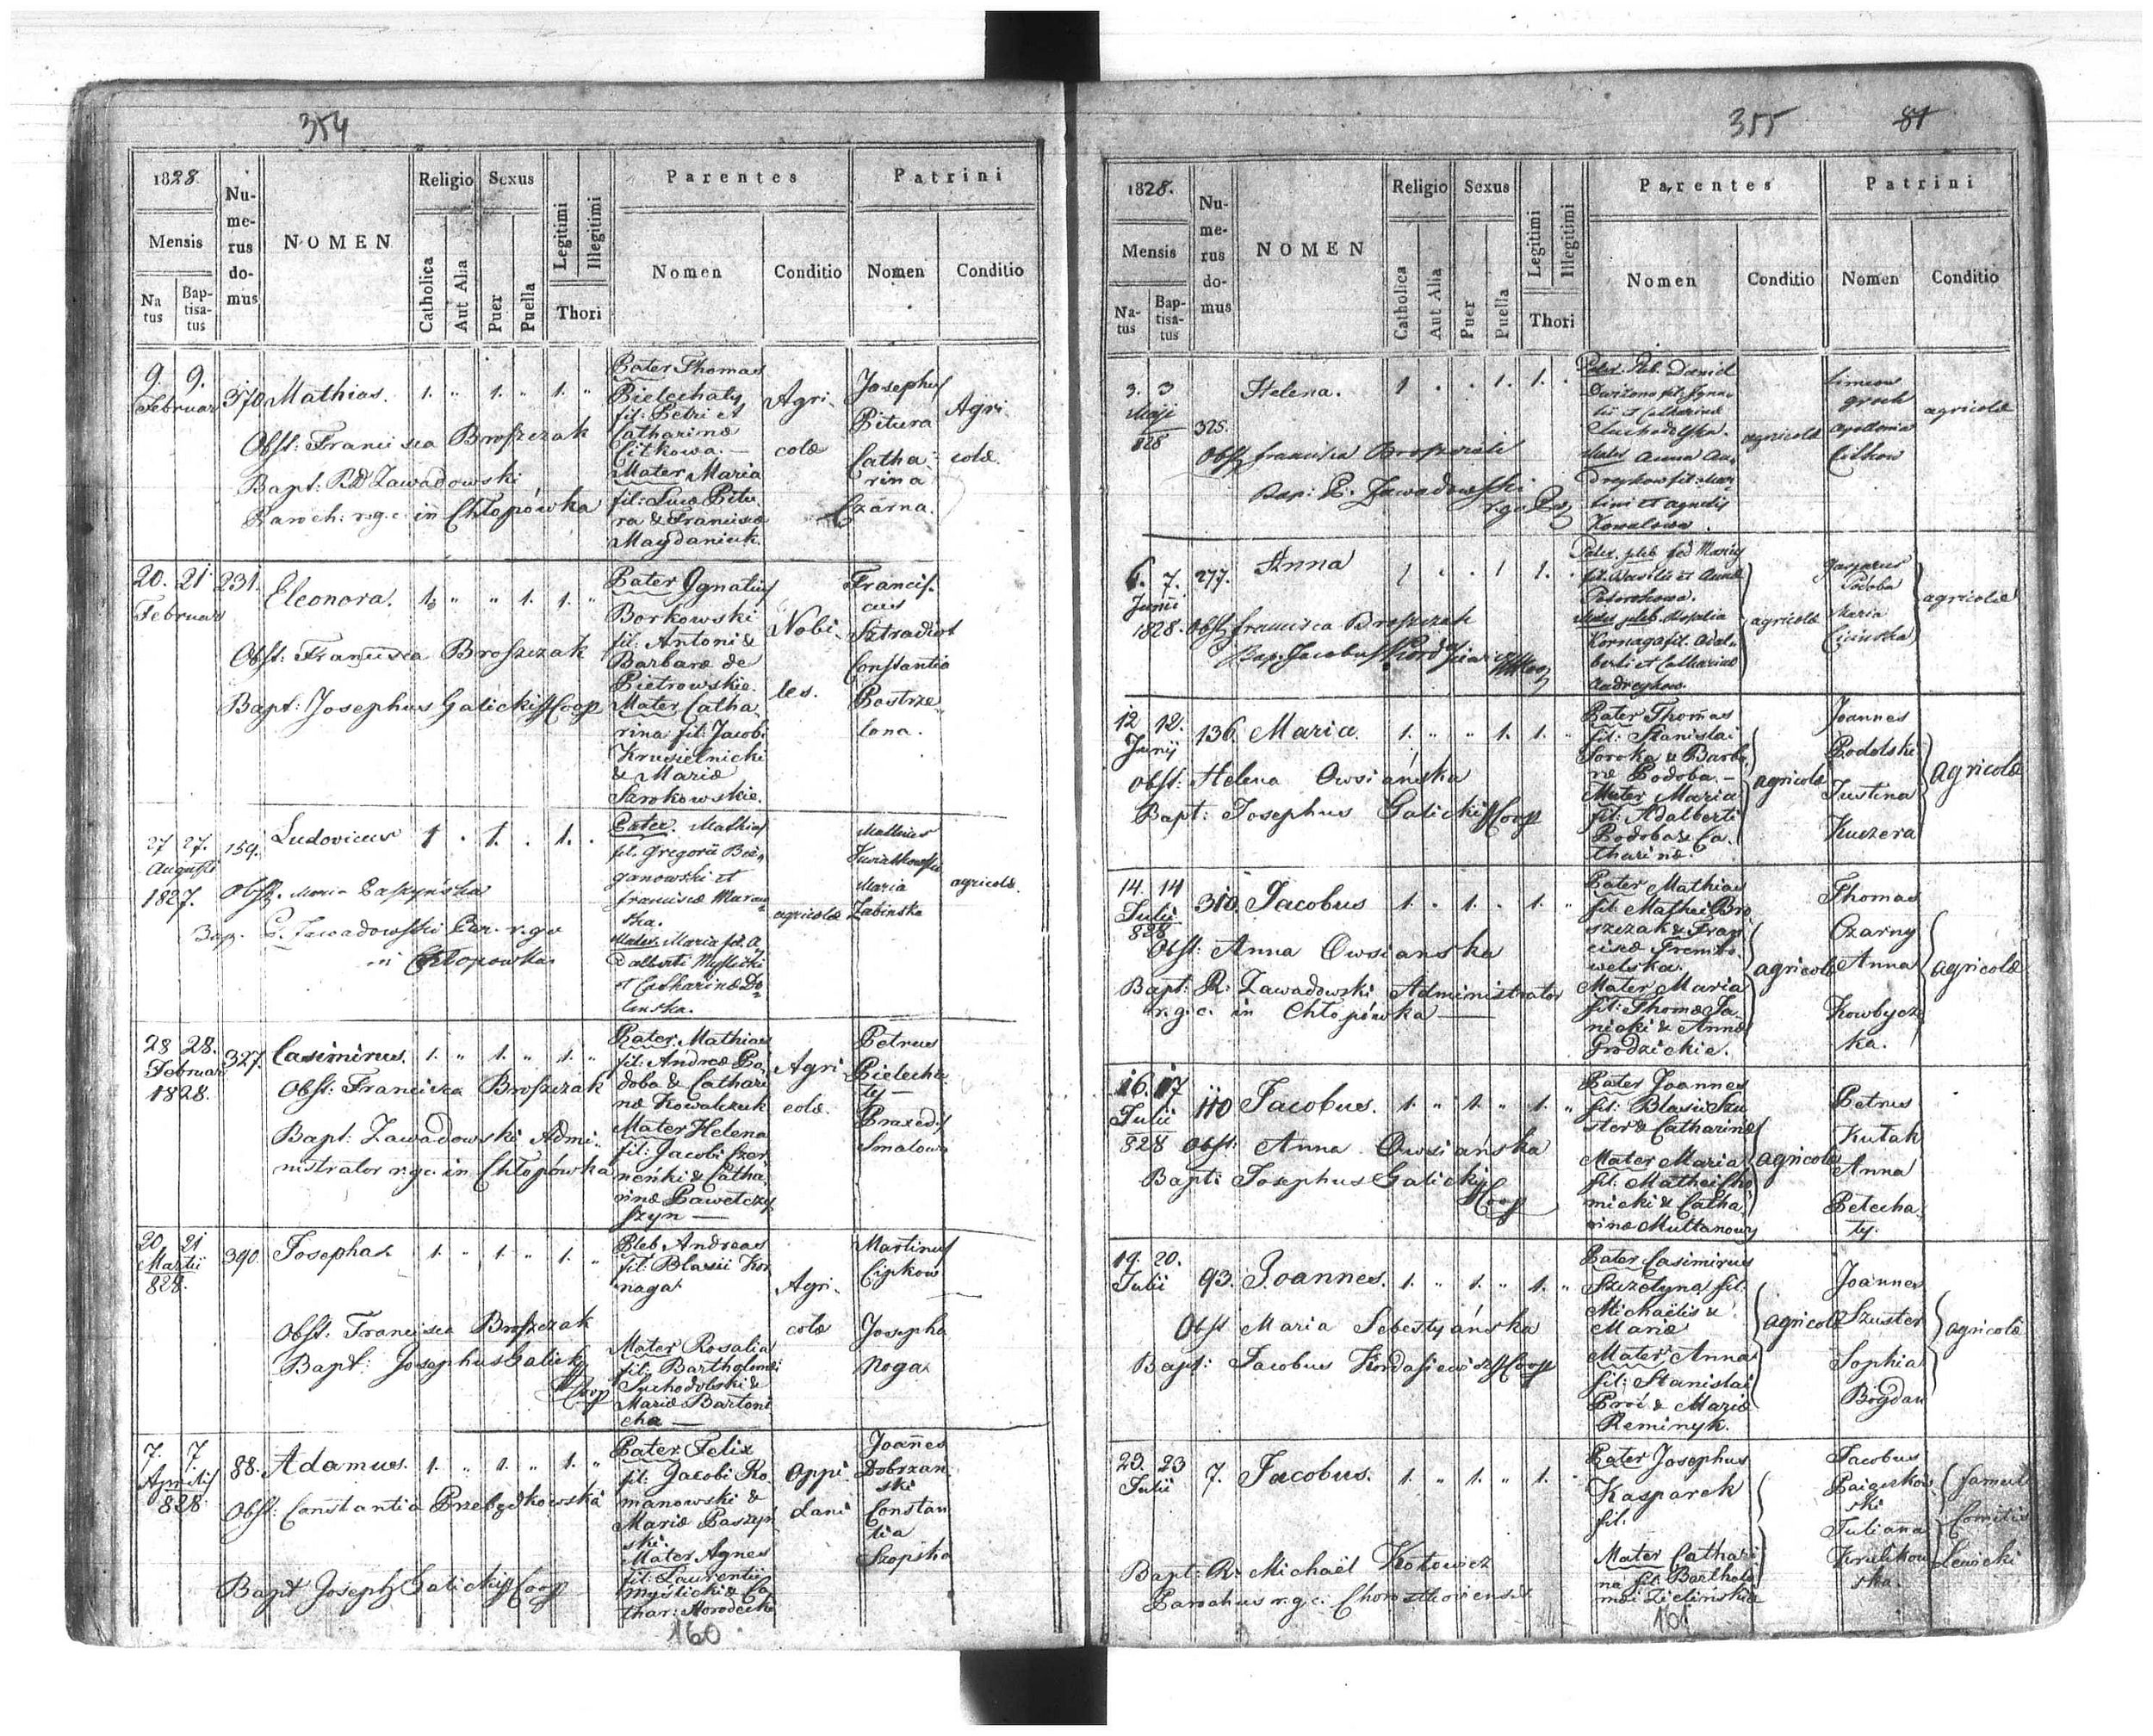 354
1828.
Mensis
Na tus
Bap- tisa- tus
Nu- me- rus do- mus
NOMEN
Religio
Catholica
Aut Alia
Sexus
Puer
Puella
Legitimi
Illegitimi
Thori
Parentes
Nomen
Conditio
Patrini
Nomen
Conditio
9. 9. Februar 370 Mathias. 1. " 1. " 1. "
Obst: Francisca Broszczak
Bapt: Rd Zawadowski
Paroch: r.g.c. in Chłopówka
Pater Thomas
Bielechaty
fil: Petri et
Catharinæ
Citkowa. —
Mater Maria
fil: Lucæ Pitu
ra & Franciscæ
Maydaniuk.
Agri-
colæ
Josephus
Pitura
Catha-
rina
Czarna.
Agri
colæ
20. 21 Februar 231. Eleonora. 1. " " 1. 1. "
Obst: Francisca Broszczak
Bapt: Josephus Galicki Coop
Pater Ignatius
Borkowski
fil: Antoni &
Barbaræ de
Pietrowskie.
Mater Catha
rina fil: Jacobi
& Mariæ
Nobi-
les.
Francis-
cus
Constantia
Postrze
lona.
27 27. Augusti 1827. 159. Ludovicus 1 . 1. . 1. .
Obst. Maria Paszyńska
Bap. P. Zawadowski Par. r.g.c
in Chłopowka
Pater. Mathias
fil. Gregorii Bie
ganowski et
Franciscæ
ska.
Mater. Maria fil. A
dalberti Myślicki
et Catharinæ Do
linska.
agricolæ
Mathias
Maria
Zabinska
agricolæ.
28 28. Februar 1828. 327. Casimirus. 1. " 1. " 1. "
Obst: Francisca Broszczak
Bapt: Zawadowski Admi-
nistrator r.g.c. in Chłopówka
Pater. Mathias
fil: Andreæ Po
doba & Cathari
næ Kowalczuk
Mater Helena
fil: Jacobi Czer
neńki & Catha
rinæ Pawelczy
szyn —
Agri
colæ.
Petrus
Bielecha
ty —
Praxedis
Smalowa
20. 21 Martii 828. 390. Josepha. 1. " 1. " 1. "
Obst. Francisca Broszczak
Bapt: Josephus Galicki
Coop
Pleb. Andreas
fil: Blasii Kor
naga.
Mater Rosalia
fil: Bartholomæi
Suchodolski &
Mariæ Bartoni
cha —
Agri-
colæ
Martinus
Cipkow
Josepha
Noga
7. 7. Aprilis 828 88. Adamus. 1. " 1. " 1. "
Obst: Constantia Przebydkowska
Bapt Joseph Galicki Coop
Pater Felix
fil: Jacobi Ro
manowski &
Mariæ Paszyń
ski.
Mater Agnes
fil: Laurentii
Myślicki & Ca
thar: Horodecki
Oppi
dani
Joannes
Dobrzań
ski
Constan
tia
Szopska
160
355 81
1828.
Mensis
Na- tus
Bap- tisa- tus
Nu- me- rus do- mus
NOMEN
Religio
Catholica
Aut Alia
Sexus
Puer
Puella
Legitimi
Illegitimi
Thori
Parentes
Nomen
Conditio
Patrini
Nomen
Conditio
3. 3 Maji 828 325. Helena. 1 . . 1. 1. .
Obst francisca Broszczak
Bap: P. Zawadowski
Pater. Pleb. Daniel
fil: Igna
tii et Catharinæ
Suchodolska.
Mater Anna An
dreykow fil: Mar
tini et Agnetis
Kowalowa.
agricolæ
Simeon
Groch
Apollonia
Citkow
agricolæ
6. 7. Junii 1828. 277. Anna 1 . . 1 1. .
Obst francisca Broszczak
Bap. Jacobus Kordasiewicz Coop
Pater. pleb
fil. Wasilii et Annæ
Mater pleb Rosalia
Kornaga fil. Adal-
berti et Catharinæ
Andreykow.
agricolæ
Gasparus
Podoba
Maria
agricolæ
12 12. Junij 136. Maria. 1. " " 1. 1. "
Obst: Helena Owsiańska
Bapt: Josephus Galicki Coop
Pater Thomas
fil: Stanislai
Soroka & Barba
ræ Podoba. —
Mater Maria
fil: Adalberti
Podoba & Ca
tharinæ.
agricolæ
Joannes
Podolski
Justina
Kuczera
agricolæ
14. 14 Julii 828 310. Jacobus 1. . 1. . 1. "
Obst: Anna Owsianska
Bapt: R. Zawadowski Administrator
r.g.c. in Chłopówka —
Pater Mathias
fil: Mathei Bro
szczak & Fran
ciscæ Trembo
welska.
Mater Maria
fil: Thomæ Ja
nicki & Annæ
Grodzickie.
agricolæ
Thomas
Czarny
Anna
Kowbycz
ka.
agricolæ
16. 17 Julii 828 110 Jacobus. 1. " 1. " 1. "
Obst: Anna Owsiańska
Bapt: Josephus Galicki
Coop
Pater Joannes
fil: Blasii Szu
ster & Catharinæ
Mater Maria
fil: Mathei Cho
micki & Catha
rinæ Multanowy
agricolæ
Petrus
Kułak
Anna
Pelecha
ty.
19. 20. Julii 93. Joannes. 1. " 1. " 1. "
Obst Maria Sebestyańska
Bapt: Jacobus Kordasiewicz Coop
Pater Casimirus
Szczotyna fil:
Michaelis &
Mariæ
Mater. Anna
fil: Stanislai
Proć & Mariæ
Reminyk.
agricolæ
Joannes
Szuster
Sophia
Bogdan
agricolæ
23. 23 Julii 7. Jacobus. 1. " 1. " 1. "
Bapt: R. Michaël Kotowicz
Parochus r.g.c. Chorostkoviensis
Pater Josephus
Kasparek
fil.
Mater Cathari
na fil: Bartholo
mæi Zielińskie
Jacobus
Paigerkow
ski
Juliana
Krulikow
ska.
famuli
Comitis
Lewicki